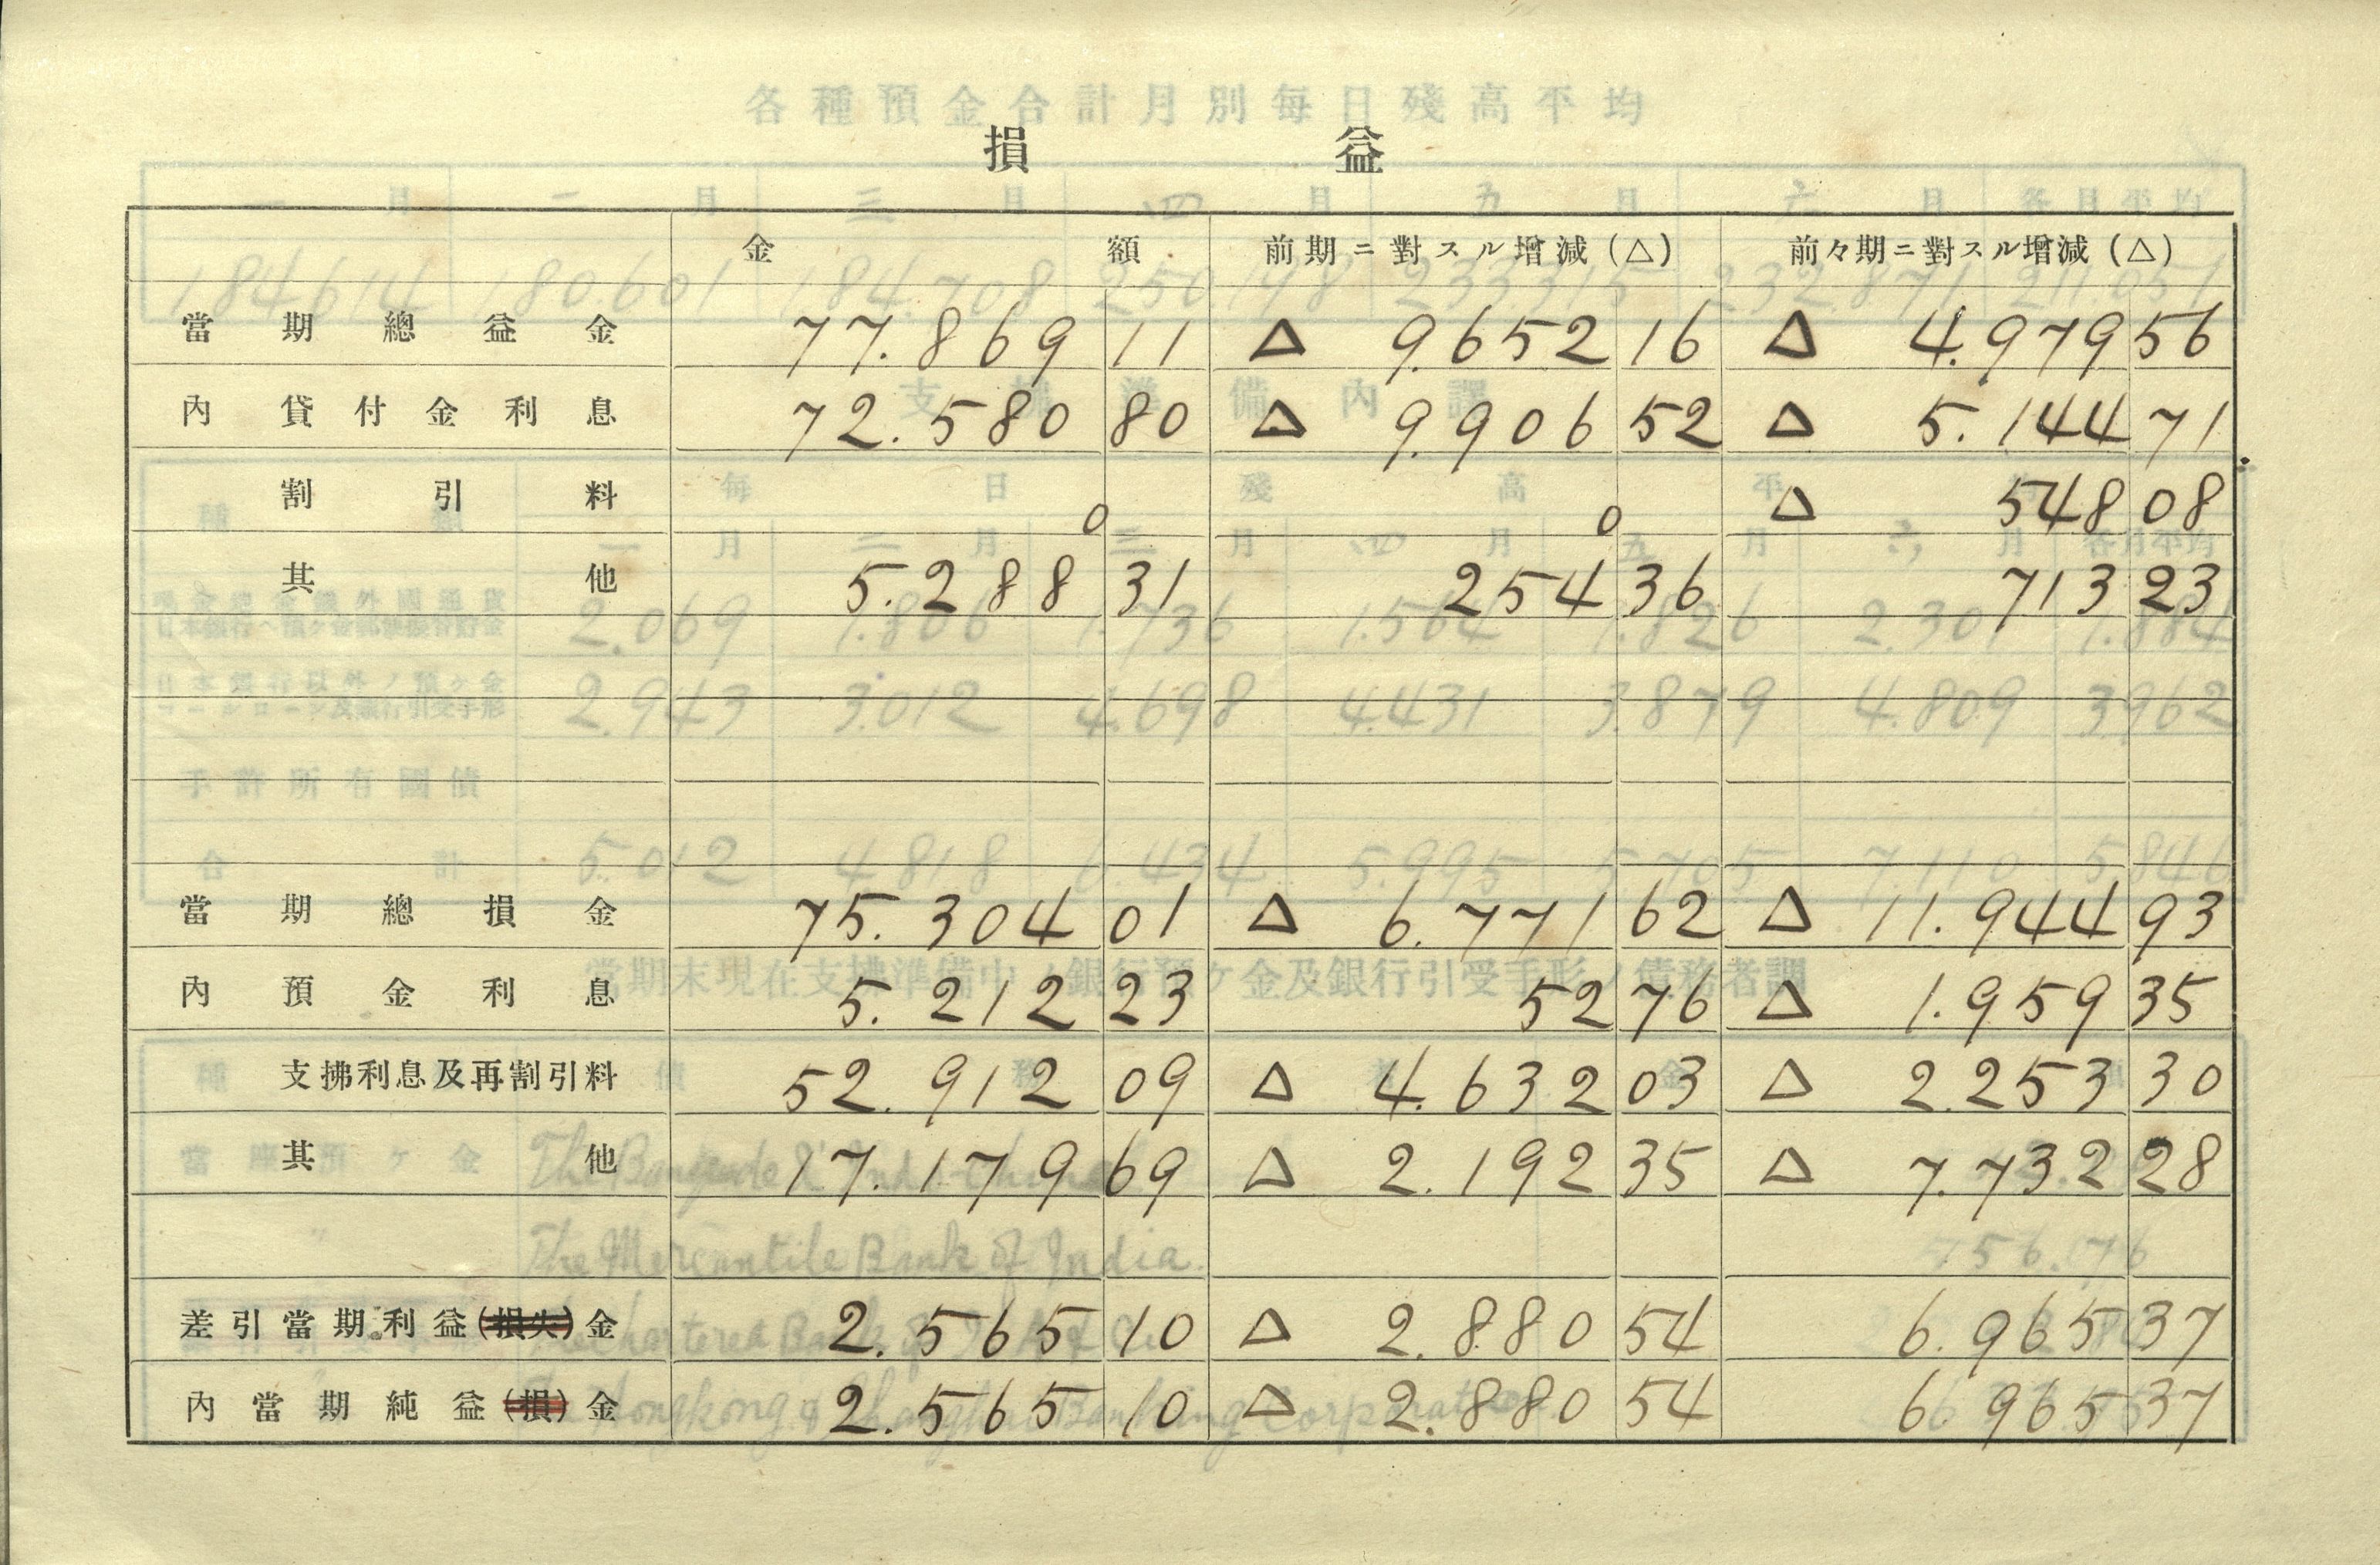 損益
金額 前期ニ對スル增減(△) 前々期ニ對スル增減(△)
當期總益金 77.869 11 △ 9.652 16 △ 4.979 56
內貸付金利息 72.580 80 △ 9.906 52 △ 5.144 71
割引料 0 0 △ 548 08
其他 5.288 31 254 36 713 23
當期總損金 75.304 01 △ 6.771 62 △ 11.944 93
內預金利息 5.212 23 52 76 △ 1.959 35
支拂利息及再割引料 52.912 09 △ 4.632 03 △ 2.253 30
其他 17.179 69 △ 2.192 35 △ 7.732 28
差引當期利益(損失)金 2.565 10 △ 2.880 54 6.965 37
內當期純益(損)金 2.565 10 △ 2.880 54 6.965 37